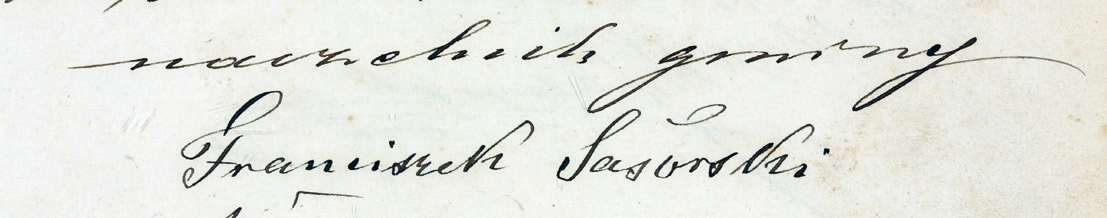 naczelnik gminy
Franciszek Sasorski